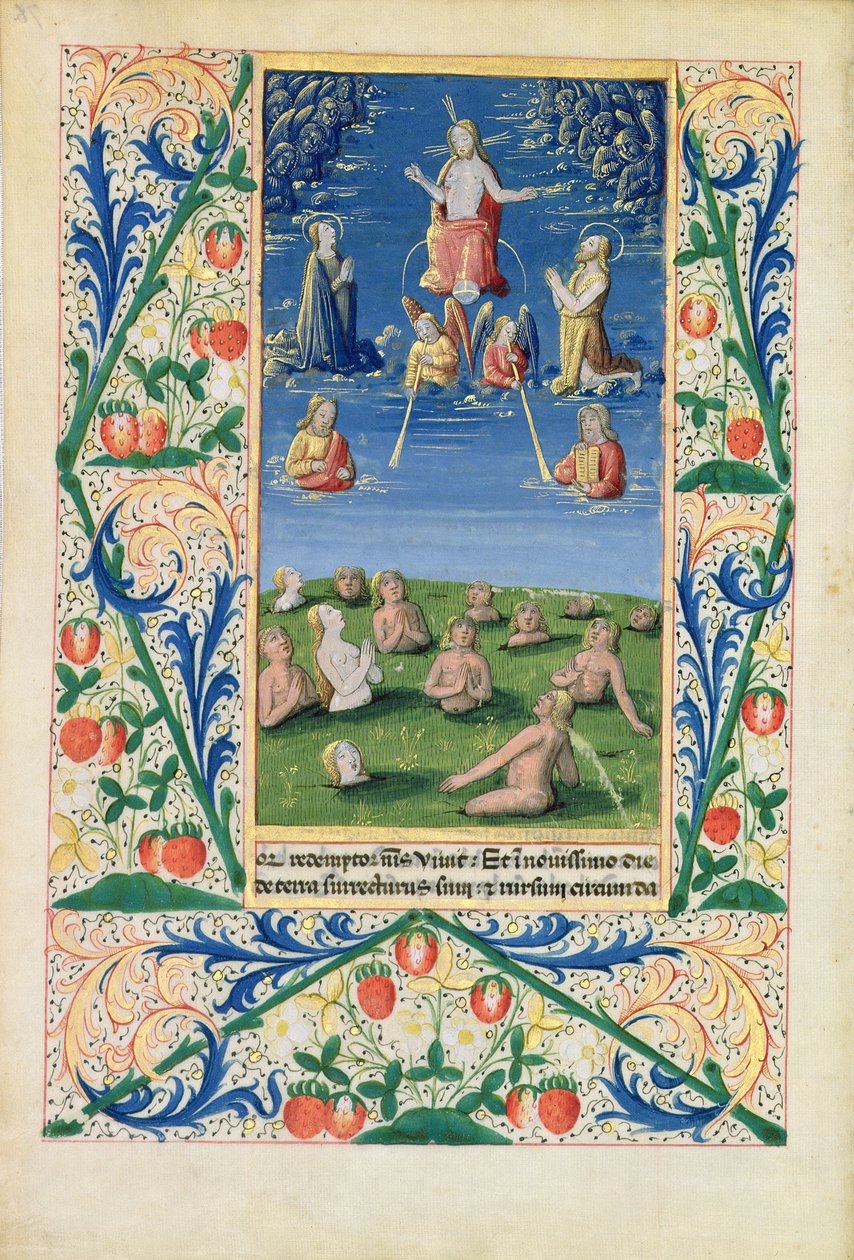 or redemptor m̄s viuit: Et ī nouissimo die
de terra surrecturus sum: ⁊ rursum circunda